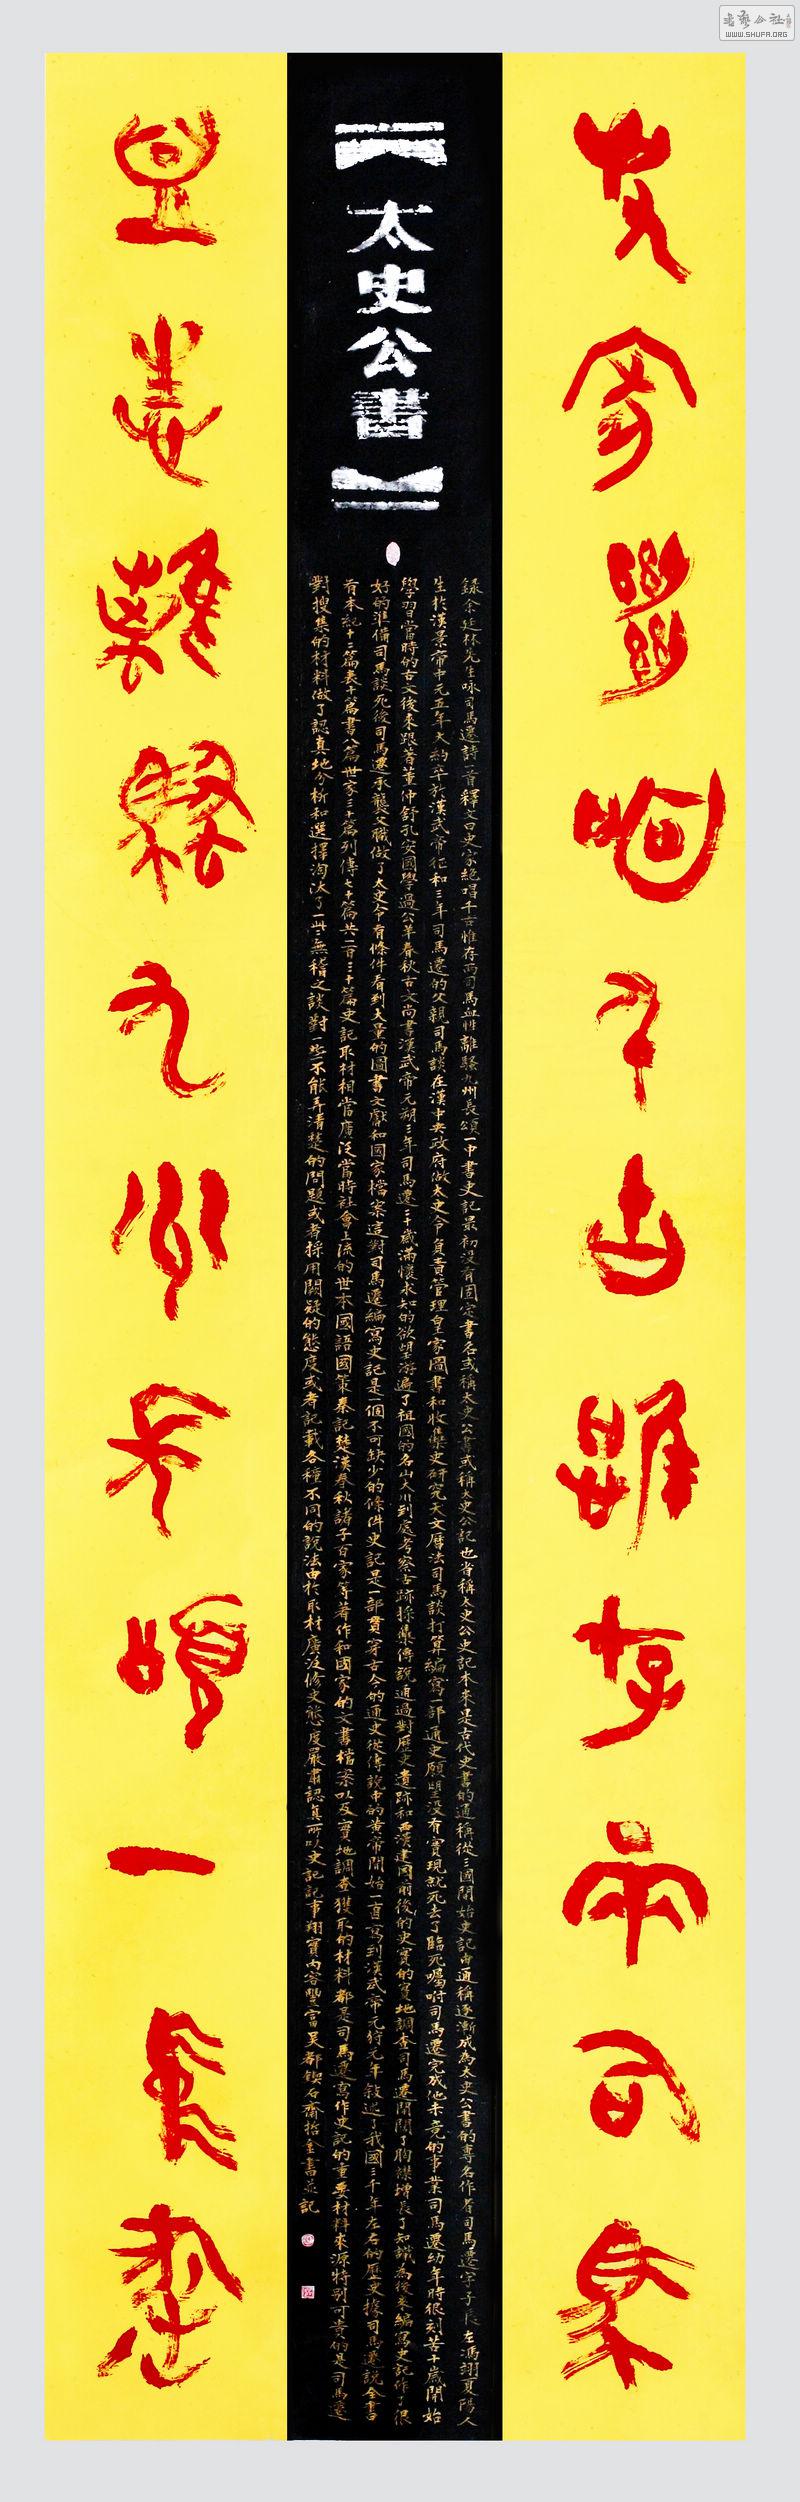 史家絕唱千古惟存兩司馬
太史公書
録余延林先生咏司馬遷詩一首釋文曰史家絶唱千古惟存兩司馬血性離騷九州長頌一中書史記最初没有固定書名或稱太史公書或稱太史公記也省稱太史公史記本來是古代史書的通稱從三國開始史記由通稱逐漸成為太史公書的專名作者司馬遷字子長左馮翊夏陽人
生於漢景帝中元五年大約卒於漢武帝征和三年司馬遷的父親司馬談在漢中央政府做太史令負責管理皇家圖書和收集史研究天文曆法司馬談打算編寫一部通史願望没有實現就死去了臨死囑咐司馬遷完成他未竟的事業司馬遷幼年時很刻苦十歲開始
學習當時的古文後來跟著董仲舒孔安國學過公羊春秋古文尚書漢武帝元朔三年司馬遷二十歲滿懷求知的欲望游遍了祖國的名山大川到處考察古跡採集傳說通過對歷史遺跡和西漢建國前後的史實的實地調查司馬遷開闊了胸襟增長了知識為後來編寫史記作了很
好的準備司馬談死後司馬遷承襲父職做了太史令有條件看到大量的圖書文獻和國家檔案這對司馬遷編寫史記是一個不可缺少的條件史記是一部貫穿古今的通史從傳說中的黃帝開始一直寫到漢武帝元狩元年敘述了我國三千年左右的歷史據司馬遷說全書
有本紀十二篇表十篇書八篇世家三十篇列傳七十篇共一百三十篇史記取材相當廣泛當時社會上流的世本國語國策秦記楚漢春秋諸子百家等著作和國家的文書檔案以及實地調查獲取的材料都是司馬遷寫作史記的重要材料來源特别可貴的是司馬遷
對搜集的材料做了認真地分析和選擇淘汰了一些無稽之談對一些不能弄清楚的問題或者採用闕疑的態度或者記載各種不同的說法由於取材廣泛修史態度嚴肅認真所以史記記事翔實内容豐富吴都鍥石齋哲金書並記
血性離騷九州長頌一中書
WWW.SHUFA.ORG